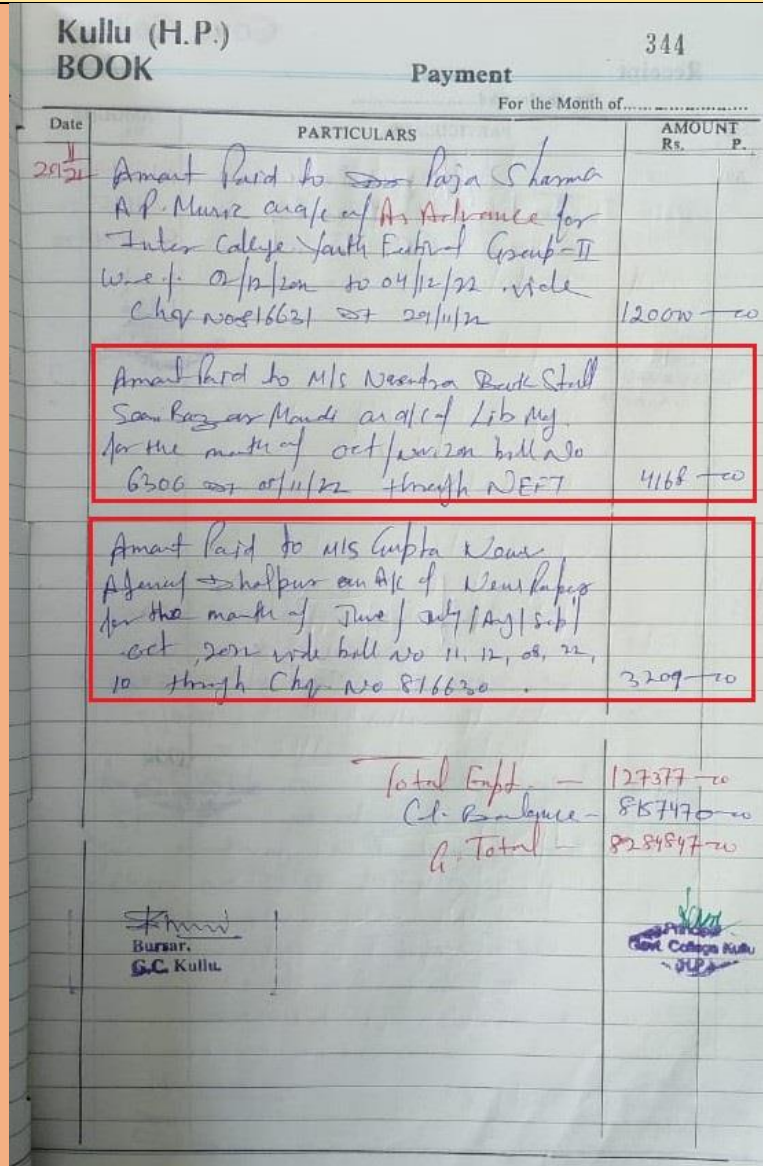 Kullu (H.P.)
BOOK
344
Payment
For the Month of
Date PARTICULARS AMOUNT
Rs. P.
Amant Paid to Sharma
A.P. Music on a/c of As Advance for
Inter College Youth Festival Group-II
w.e.f. 02/12/2022 to 04/12/22 vide
Chq No 816631 29/11/22 120000-00
Amant Paid to M/s Narendra Book Stall
Bazar Mandi on a/c of Lib Mg.
for the month of oct/ bill No
6306 05/11/22 through NEFT 4168-00
Amant Paid to M/s Gupta News
Agency Dhalpur on A/c of News Paper
for the month of June/July/Aug/Sep/
oct, 2022 vide bill No 11, 12, 08, 22,
10 through Chq No 816630. 3209-00
Total Expt. - 127377-00
Cl. Balance - 8157470-00
G. Total - 8284847-00
Bursar,
G.C. Kullu.
Principal
Govt. College Kullu
H.P.